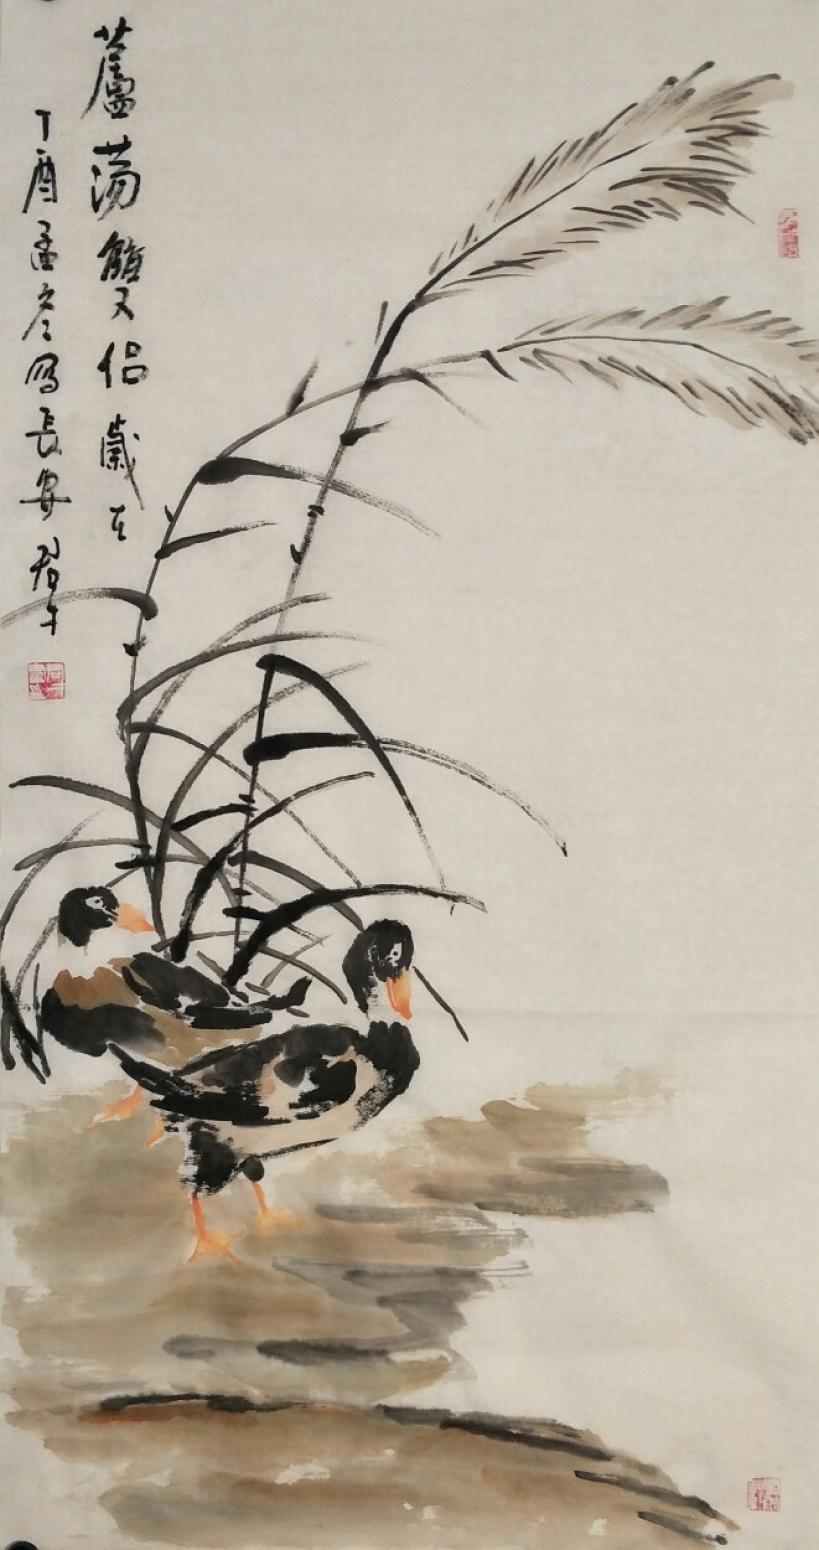 蘆蕩雙侶 歲在
丁酉孟冬寫長安 君牛